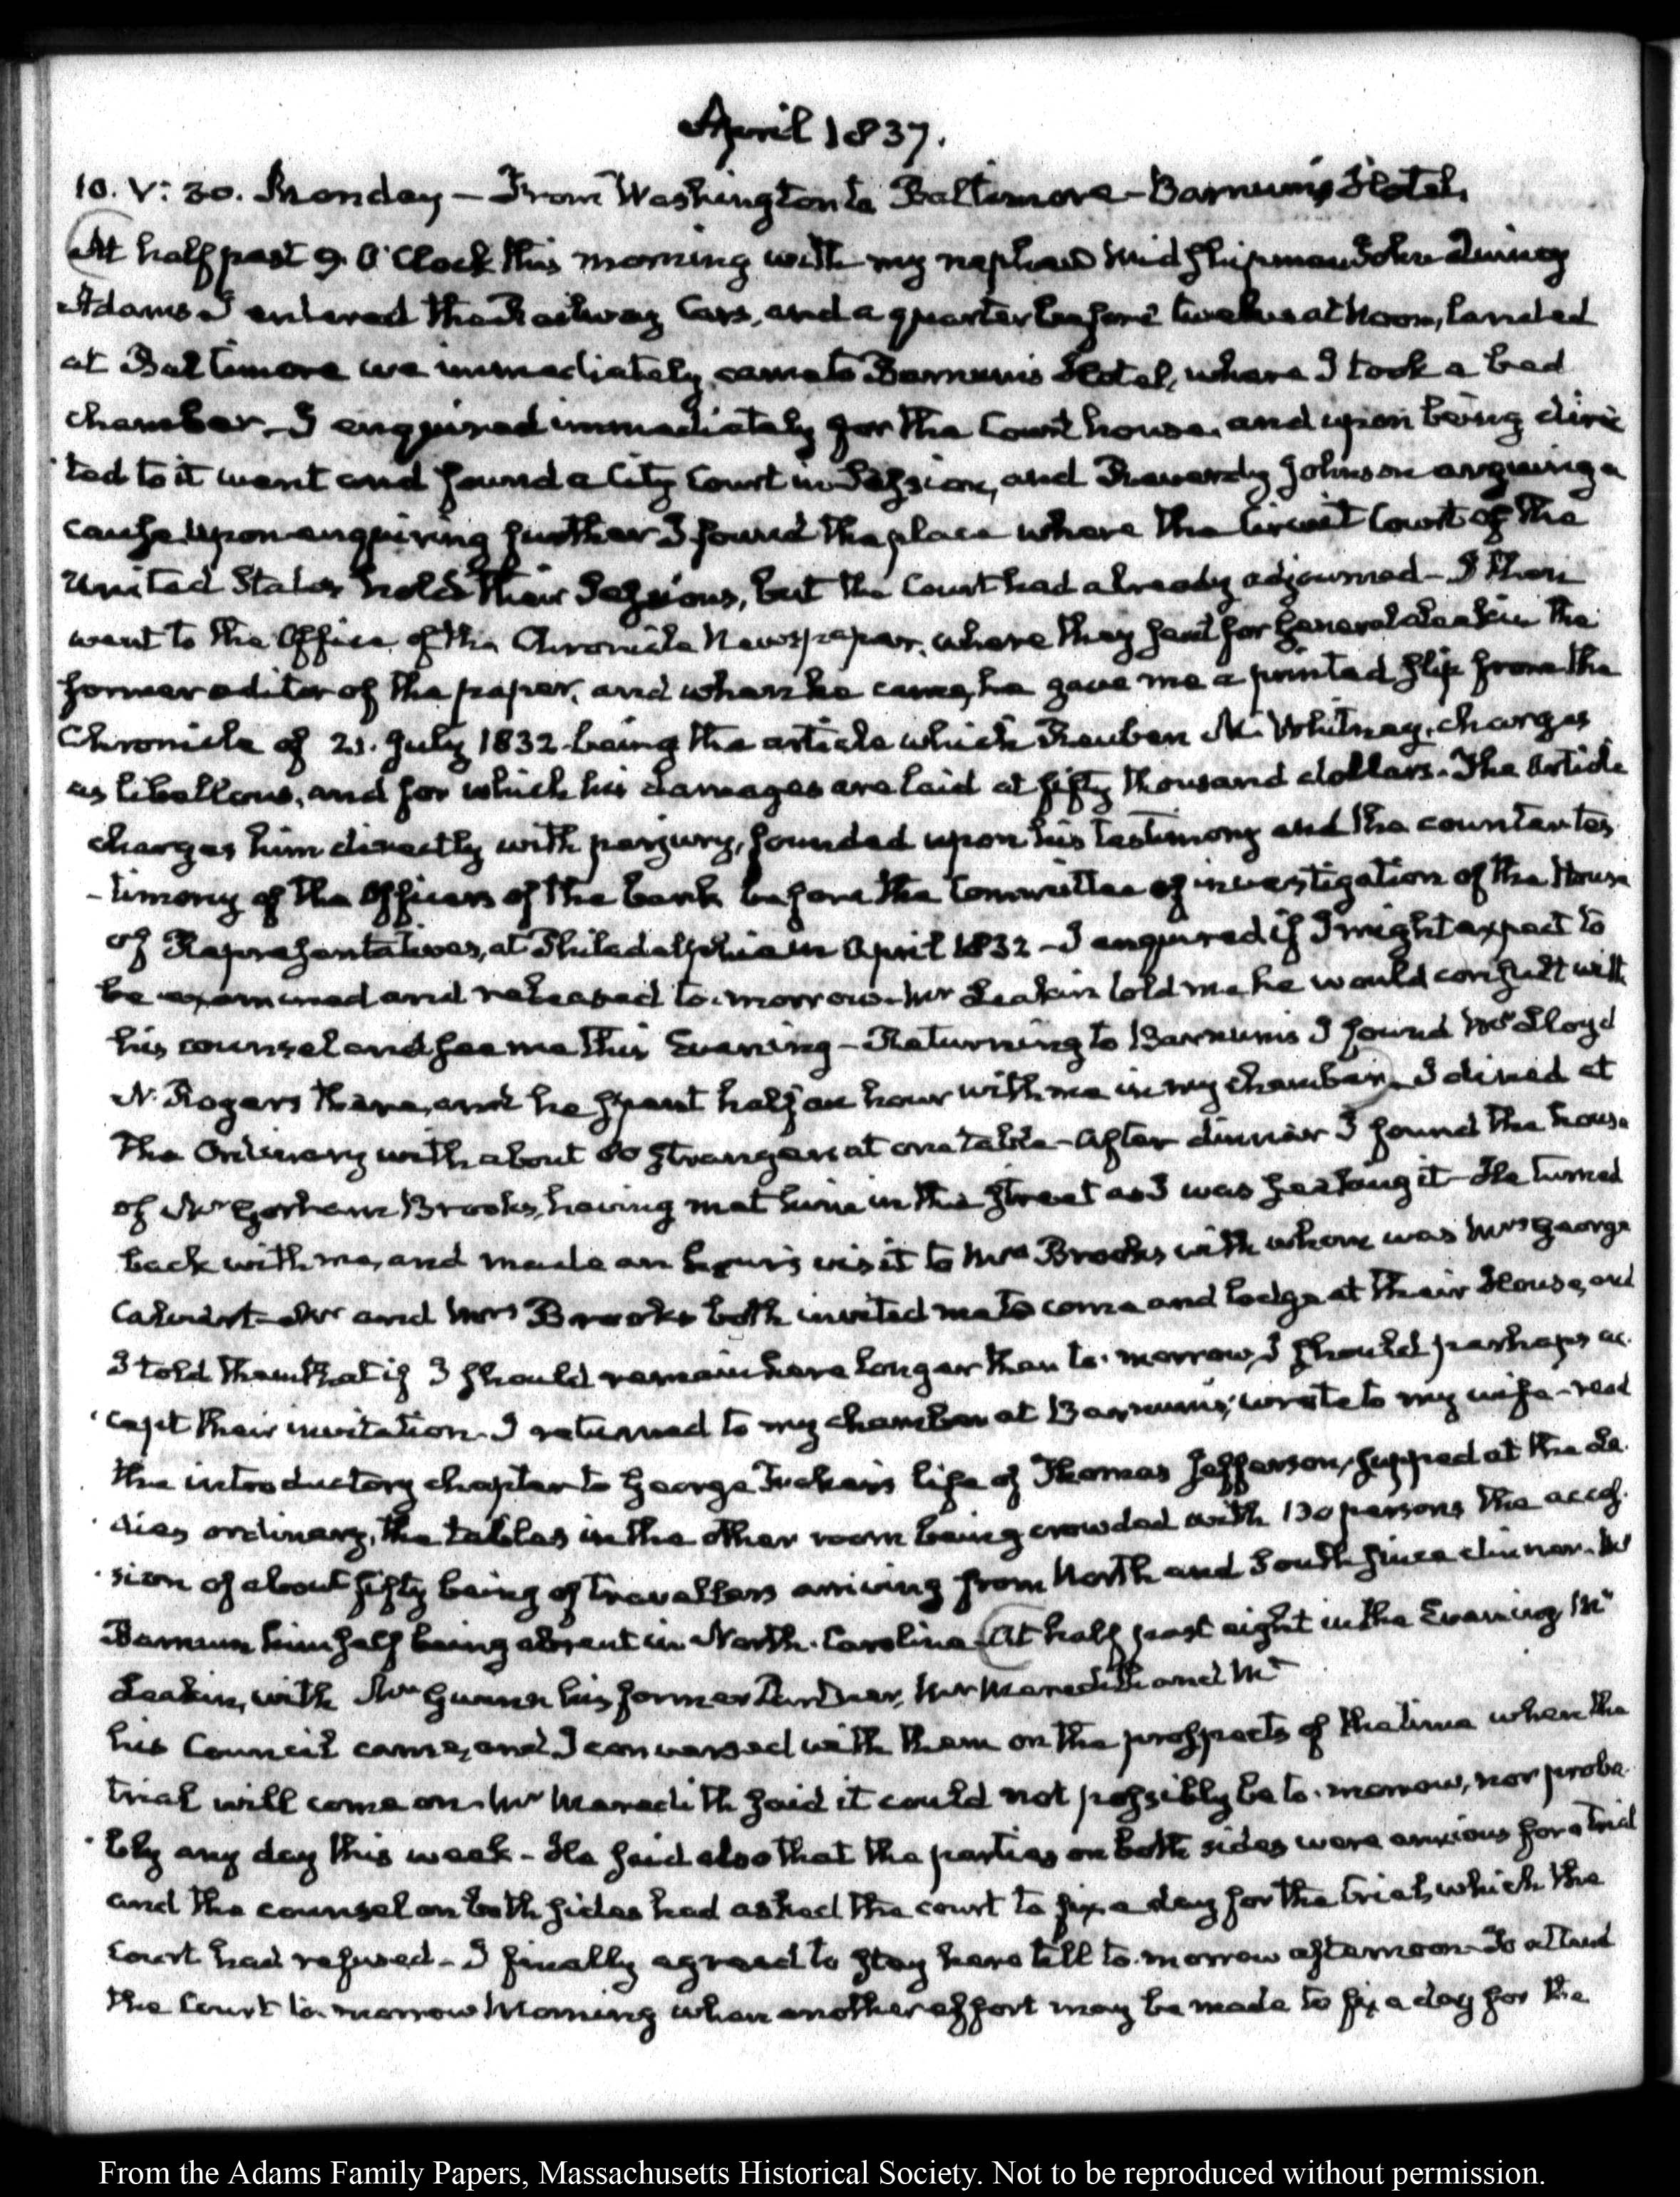 April 1837.
10. V: 30. Monday — From Washington to Baltimore — Barnum's Hotel.
At half past 9. O'Clock this morning with my nephew Midshipman John Quincy
Adams I entered the Railway Cars, and a quarter before twelve at Noon, landed
at Baltimore we immediately came to Barnum's Hotel, where I took a bed
chamber — I enquired immediately for the Court house, and upon being direc
ted to it went and found a City Court in Session, and Reverdy Johnson arguing a
cause. Upon enquiring further I found the place where the Circuit Court of the
United States hold their Sessions, but the Court had already adjourned — I then
went to the Office of the Chronicle Newspaper, where they sent for General Leakin the
former editor of the paper, and when he came, he gave me a printed slip from the
Chronicle of 21. July 1832 being the article which Reuben M. Whitney, charges
as libellous, and for which his damages are laid at fifty thousand dollars. The Article
charges him directly with perjury, founded upon his testimony and the counter tes
-timony of the Officers of the bank before the Committee of investigation of the House
of Representatives, at Philadelphia in April 1832 — I enquired if I might expect to
be examined and released to-morrow. Mr Leakin told me he would consult with
his counsel and see me this Evening — Returning to Barnum's I found Mr Lloyd
N. Rogers there, and he spent half an hour with me in my chamber. I dined at
the Ordinary with about 80 strangers at one table — After dinner I found the house
of Mr Gorham Brooks, having met him in the street as I was seeking it — He turned
back with me, and made an hour's visit to Mrs Brooks with whom was Mrs George
Calvert — Mr and Mrs Brooks both invited me to come and lodge at their House, and
I told them that if I should remain here longer than to-morrow, I should perhaps ac
cept their invitation. I returned to my chamber at Barnum's; wrote to my wife — read
the introductory chapter to George Tucker's life of Thomas Jefferson, supped at the La
dies ordinary, the tables in the other room being crowded with 130 persons the acces
sion of about fifty being of travellers arriving from North and South since dinner. Mr
Barnum himself being absent in North-Carolina. At half past eight in the Evening Mr
Leakin, with Mr Gwinn his former Partner, Mr Meredith and Mr
his Council came, and I conversed with them on the prospects of the time when the
trial will come on. Mr Meredith said it could not possibly be to-morrow, nor proba
bly any day this week — He said also that the parties on both sides were anxious for a trial
and the counsel on both sides had asked the court to fix a day for the trial, which the
Court had refused — I finally agreed to stay here till to-morrow afternoon — To attend
the Court to-morrow Morning when another effort may be made to fix a day for the
From the Adams Family Papers, Massachusetts Historical Society. Not to be reproduced without permission.